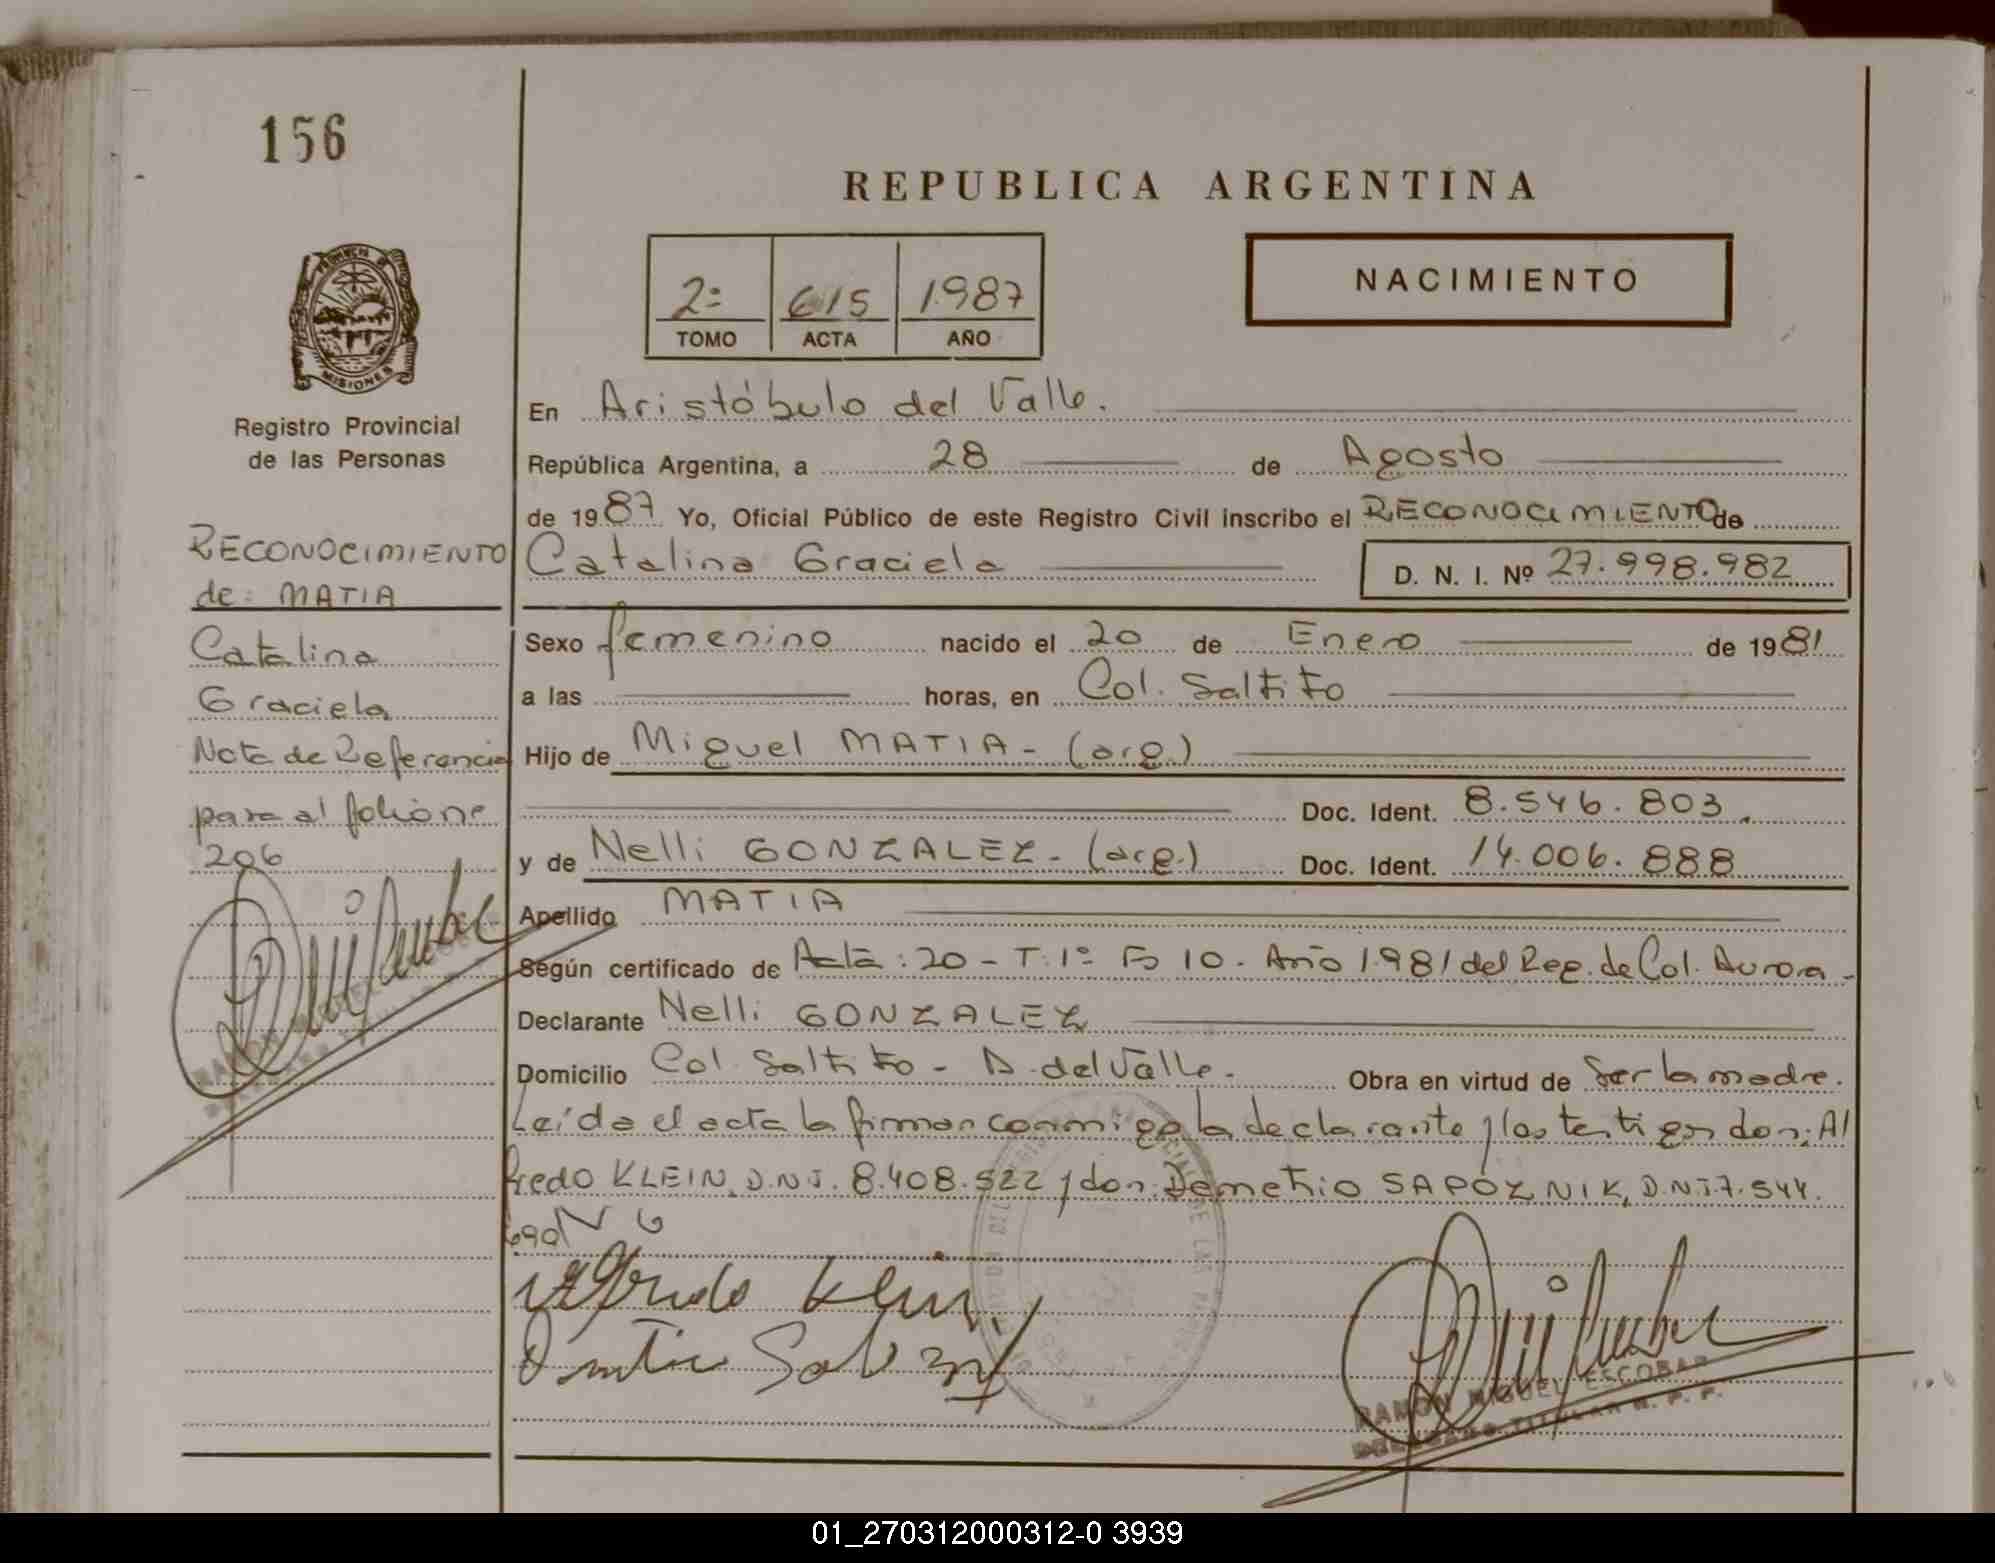 156
REPUBLICA ARGENTINA
2º 615 1987
TOMO ACTA AÑO
NACIMIENTO
PROVINCIA DE MISIONES
Registro Provincial
de las Personas
RECONOCIMIENTO
de: MATIA
Catalina
Graciela
Nota de Referencia
para al folio nº
206
En Aristóbulo del Valle.
República Argentina, a 28 de Agosto
de 1987 Yo, Oficial Público de este Registro Civil inscribo el RECONOCIMIENTO de
Catalina Graciela D. N. I. Nº 27.998.982
Sexo femenino nacido el 20 de Enero de 1981
a las horas, en Col. Saltito
Hijo de Miguel MATIA - (arg.)
Doc. Ident. 8.546.803.
y de Nelli GONZALEZ - (arg.) Doc. Ident. 14.006.888
Apellido MATIA
Según certificado de Acta: 20 - T: 1º Fº 10 - Año 1.981 del Reg. de Col. Aurora -
Declarante Nelli GONZALEZ
Domicilio Col. Saltito - A. del Valle. Obra en virtud de Ser la madre.
Leída el acta la firman conmigo la declarante y los testigos don: Al
fredo KLEIN, D.N.I. 8.408.522 y don: Demetrio SAPOZNIK, D.N.I. 7.544.
690 N G
Alfredo Klein
RAMON MIGUEL ESCOBAR
DELEGADO TITULAR R. P. P.
01_270312000312-0 3939